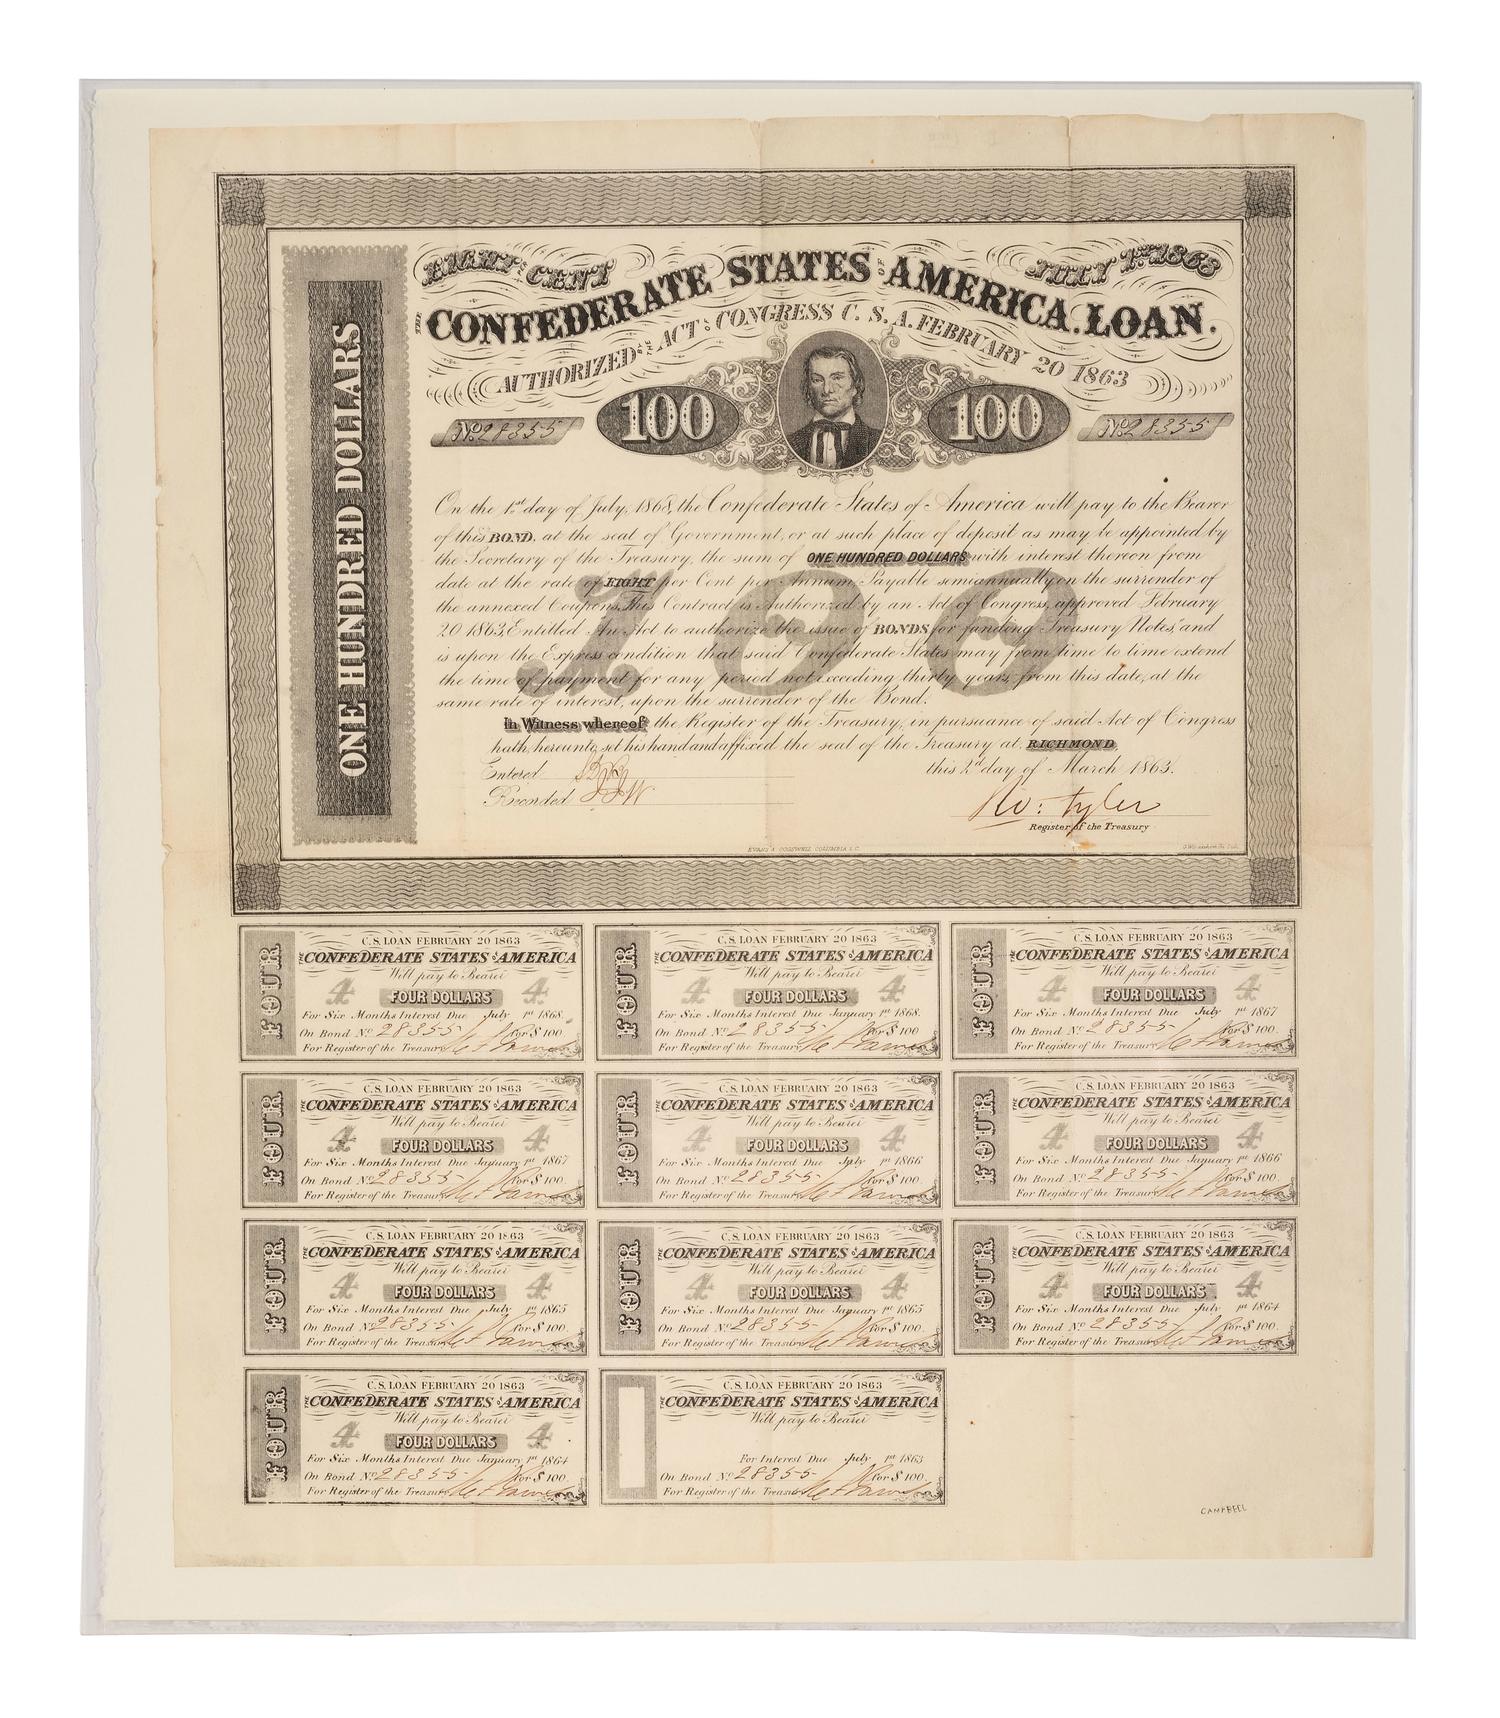 EIGHT PER CENT JULY 1st 1868
THE CONFEDERATE STATES OF AMERICA. LOAN.
AUTHORIZED BY THE ACT OF CONGRESS C. S. A. FEBRUARY 20 1863
ONE HUNDRED DOLLARS
No 28355 100 100 No 28355
On the 1st day of July, 1868, the Confederate States of America will pay to the Bearer
of this BOND, at the seat of Government, or at such place of deposit as may be appointed by
the Secretary of the Treasury, the sum of ONE HUNDRED DOLLARS with interest thereon from
date at the rate of EIGHT per Cent per Annum, Payable semiannually on the surrender of
the annexed Coupons, This Contract is Authorized by an Act of Congress, approved February
20 1863, Entitled "An Act to authorize the issue of BONDS for funding Treasury Notes," and
is upon the Express condition that said Confederate States may from time to time extend
the time of payment for any period not exceeding thirty years, from this date, at the
same rate of interest, upon the surrender of the Bond.
100
In Witness whereof the Register of the Treasury, in pursuance of said Act of Congress
hath, hereunto, set his hand and affixed the seal of the Treasury at, RICHMOND,
Entered this 2d day of March 1863.
Recorded Ro: Tyler
Register of the Treasury
EVANS & COGSWELL COLUMBIA S.C.
FOUR
C.S. LOAN FEBRUARY 20 1863
THE CONFEDERATE STATES OF AMERICA
Will pay to Bearer
4 FOUR DOLLARS 4
For Six Months Interest Due July 1st 1868.
On Bond No 28355 For $ 100.
For Register of the Treasury
FOUR
C.S. LOAN FEBRUARY 20 1863
THE CONFEDERATE STATES OF AMERICA
Will pay to Bearer
4 FOUR DOLLARS 4
For Six Months Interest Due January 1st 1868.
On Bond No 28355 For $ 100.
For Register of the Treasury
FOUR
C.S. LOAN FEBRUARY 20 1863
THE CONFEDERATE STATES OF AMERICA
Will pay to Bearer
4 FOUR DOLLARS 4
For Six Months Interest Due July 1st 1867
On Bond No 28355 For $ 100.
For Register of the Treasury
FOUR
C.S. LOAN FEBRUARY 20 1863
THE CONFEDERATE STATES OF AMERICA
Will pay to Bearer
4 FOUR DOLLARS 4
For Six Months Interest Due January 1st 1867
On Bond No 28355 For $ 100.
For Register of the Treasury
FOUR
C.S. LOAN FEBRUARY 20 1863
THE CONFEDERATE STATES OF AMERICA
Will pay to Bearer
4 FOUR DOLLARS 4
For Six Months Interest Due July 1st 1866
On Bond No 28355 For $ 100.
For Register of the Treasury
FOUR
C.S. LOAN FEBRUARY 20 1863
THE CONFEDERATE STATES OF AMERICA
Will pay to Bearer
4 FOUR DOLLARS 4
For Six Months Interest Due January 1st 1866
On Bond No 28355 For $ 100.
For Register of the Treasury
FOUR
C.S. LOAN FEBRUARY 20 1863
THE CONFEDERATE STATES OF AMERICA
Will pay to Bearer
4 FOUR DOLLARS 4
For Six Months Interest Due July 1st 1865
On Bond No 28355 For $ 100.
For Register of the Treasury
FOUR
C.S. LOAN FEBRUARY 20 1863
THE CONFEDERATE STATES OF AMERICA
Will pay to Bearer
4 FOUR DOLLARS 4
For Six Months Interest Due January 1st 1865
On Bond No 28355 For $ 100.
For Register of the Treasury
FOUR
C.S. LOAN FEBRUARY 20 1863
THE CONFEDERATE STATES OF AMERICA
Will pay to Bearer
4 FOUR DOLLARS 4
For Six Months Interest Due July 1st 1864
On Bond No 28355 For $ 100.
For Register of the Treasury
FOUR
C.S. LOAN FEBRUARY 20 1863
THE CONFEDERATE STATES OF AMERICA
Will pay to Bearer
4 FOUR DOLLARS 4
For Six Months Interest Due January 1st 1864
On Bond No 28355 For $ 100.
For Register of the Treasury
C.S. LOAN FEBRUARY 20 1863
THE CONFEDERATE STATES OF AMERICA
Will pay to Bearer
For Interest Due July 1st 1863
On Bond No 28355 For $ 100.
For Register of the Treasury
CAMPBELL